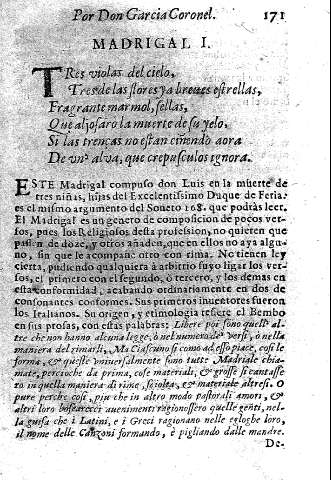 Por Don Garcia Coronel. 171
MADRIGAL I.
TRes violas del cielo,
Tres de las flores ya breues estrellas,
Fragrante marmol, sellas,
Que aljofarò la muerte de su yelo,
Si las trenças no estan ciñendo aora
De vn alva, que crepusculos ignora.
ESTE Madrigal compuso don Luis en la muerte de
tres niñas, hijas del Excelentissimo Duque de Feria:
es el mismo argumento del Soneto 168. que podràs leer.
El Madrigal es un genero de composicion de pocos ver-
sos, pues los Religiosos desta profession, no quieren que
passen de doze, y otros añaden, que en ellos no aya algu-
no, sin que le acompañe otro con rima. No tienen ley
cierta, pudiendo qualquiera à arbitrio suyo ligar los ver-
sos, el primero con el segundo, ò tercero, y los demàs en
esta conformidad, acabando ordinariamente en dos de
consonantes conformes. Sus primeros inventores fueron
los Italianos. Su origen, y etimologia refiere el Bembo
en sus prosas, con estas palabras: Libere poi sono quelle al-
tre che non hanno alcuna legge, ò nel numero de versi, ò nella
maniera del rimarli, Ma Ciascuno si come ad esso piace, cosi le
forma, & queste universalmente sono tutte Madriale chia-
mate, percioche da prima, cose materiali, & grosse si cantasse-
ro in quella maniera di rime, sciolta, & materiale altresi. O
pure perche cosi, piu che in altro modo pastorali amori, &
altri loro boscarecci auenimenti ragionassero quelle genti, nel-
la guisa che i Latini, e i Greci ragionano nelle egloghe loro,
il nome delle Canzoni formando, e pigliando dalle mandre.
De-